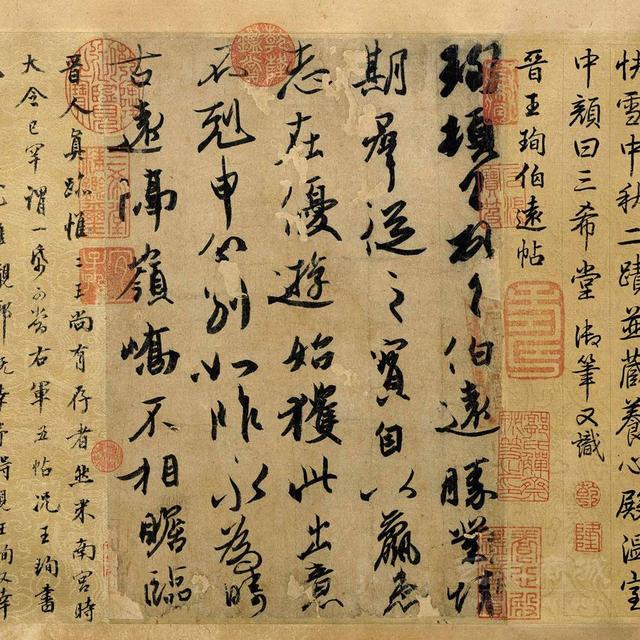 快雪中秋二蹟並藏養心殿溫室
中顏曰三希堂御筆又識
晉王珣伯遠帖
珣頓首頓首伯遠勝業情
期羣從之寶自以羸患
志在優遊始獲此出意
不剋申分別如昨永為疇
古遠隔嶺嶠不相瞻臨
晉人真跡惟二王尚有存者然米南宮時
大令已罕謂一紙可當右軍五帖況王珣書
尤難覯耶既幸予得